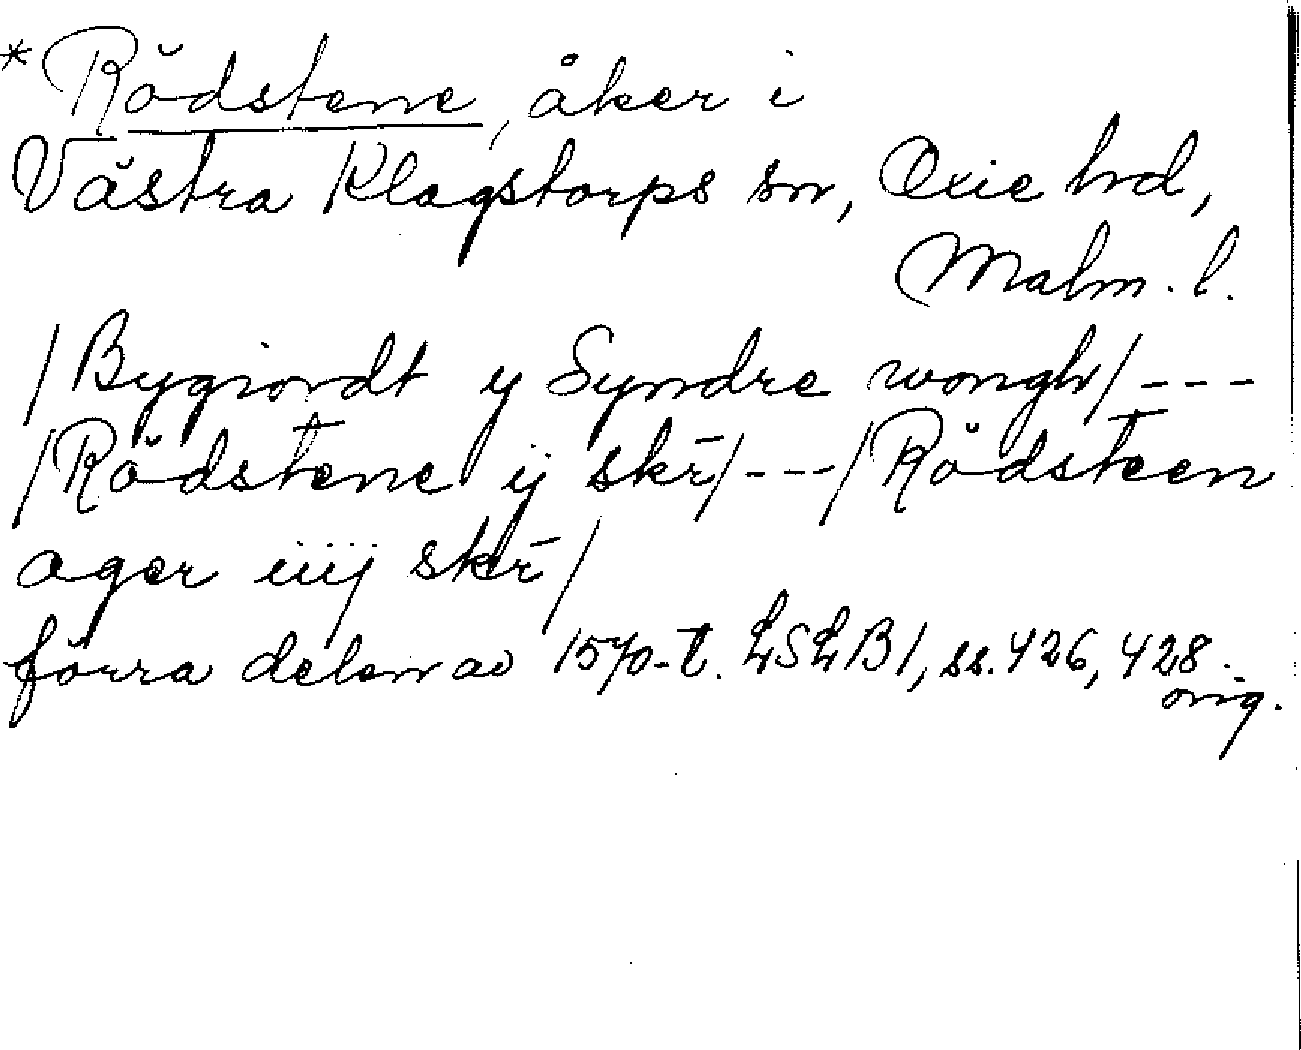 *Rödstene, åker i
Västra Klagstorps sn, Oxie hd,
Malm. l.
/Bygiordt y Syndre wongh/---
/Rödstene ij skr̄/---/Rödsteen
ager iiij skr̄/
förra delen av 1570-t. LSLB 1, ss. 426, 428.
orig.